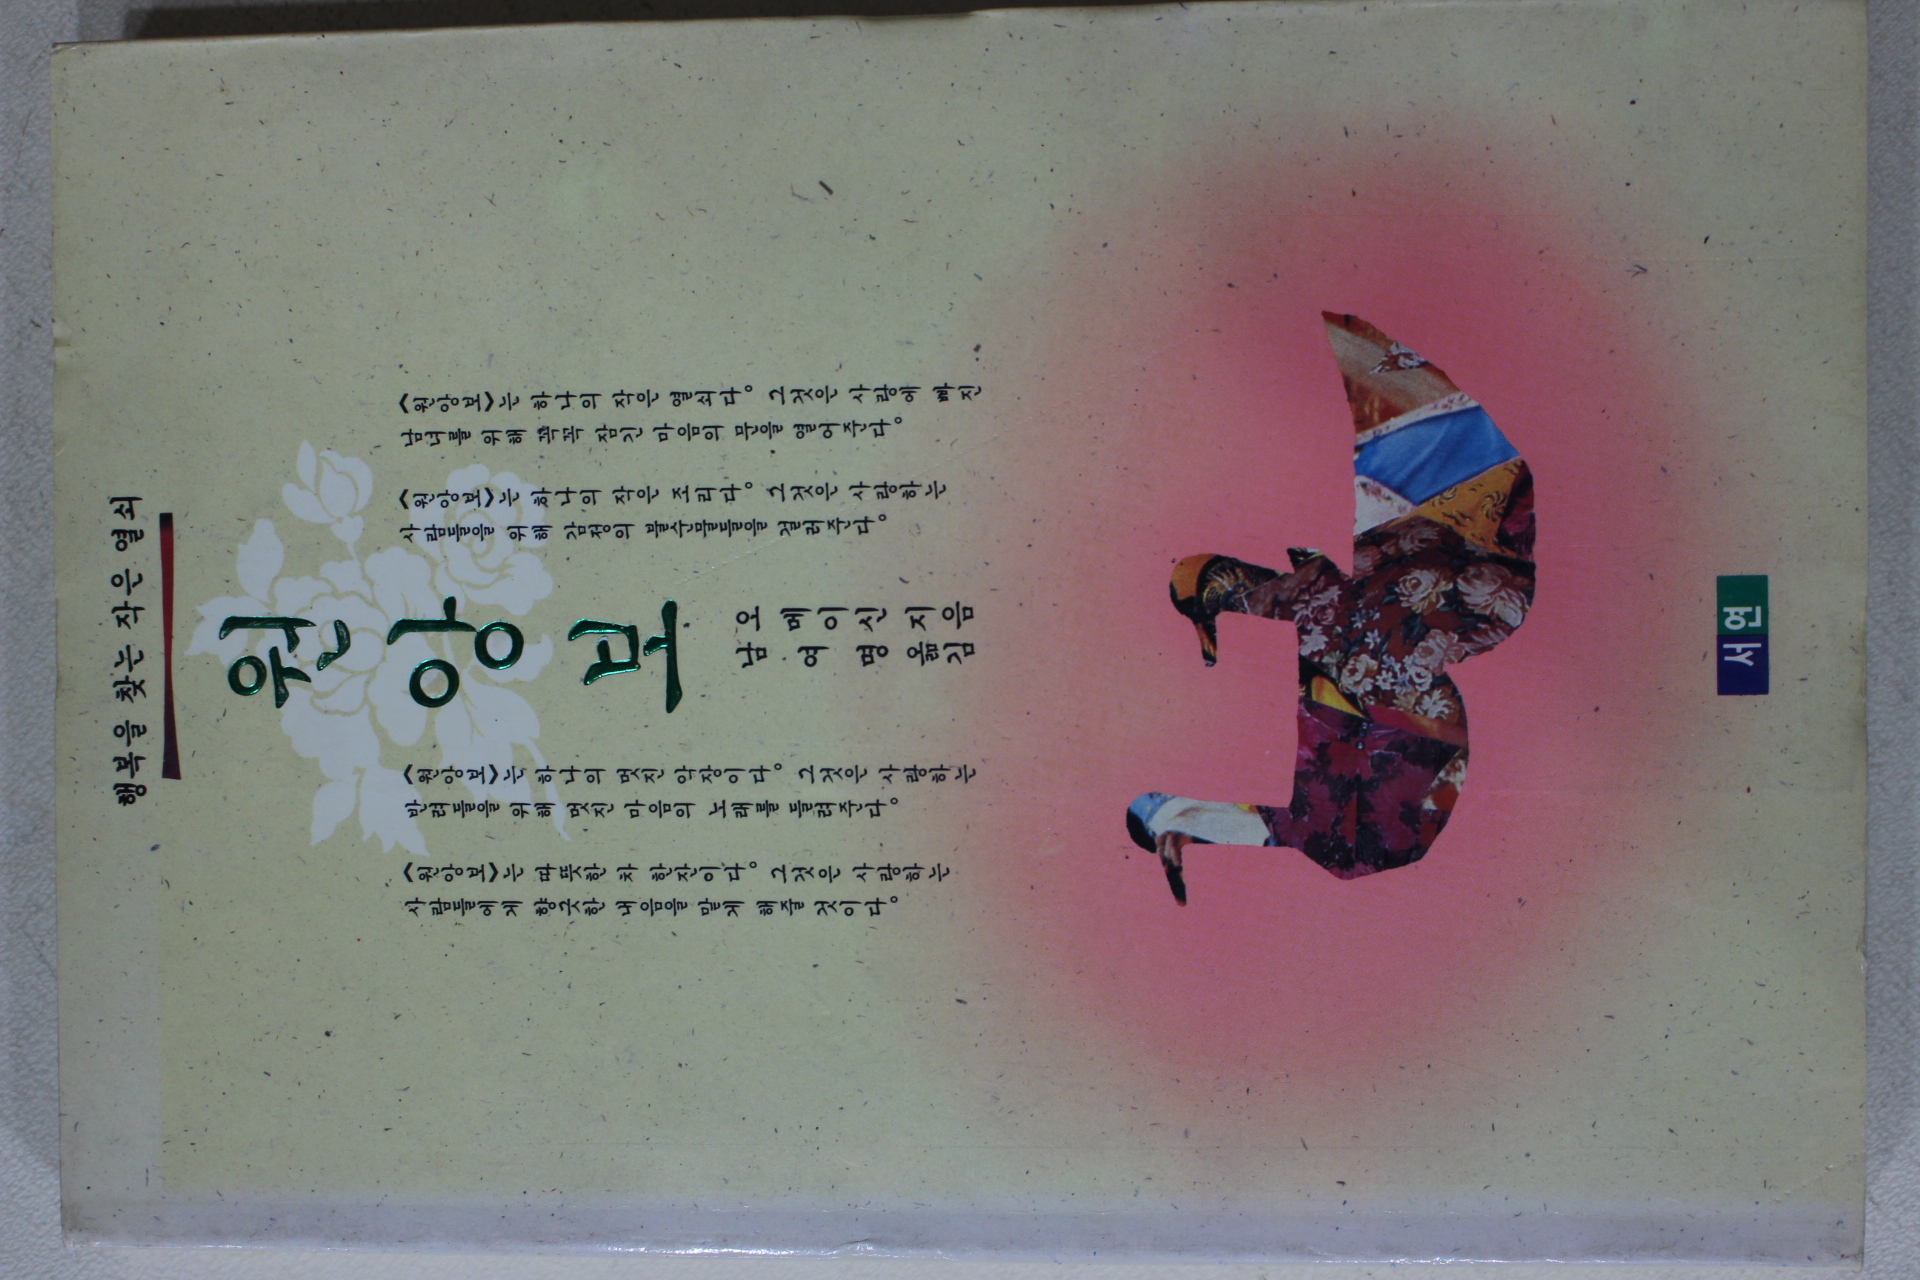 행복을 찾는 작은 열쇠
원앙보
《원앙보》는 하나의 작은 열쇠다。그것은 사랑에 빠진
남녀를 위해 꼭꼭 잠긴 마음의 문을 열어 준다。
《원앙보》는 하나의 작은 조리다。그것은 사랑하는
사람들을 위해 감정의 불순물들을 걸러준다。
오 메 이 신 지음
남 여 명 옮김
《원앙보》는 하나의 멋진 악장이다。그것은 사랑하는
반려들을 위해 멋진 마음의 노래를 들려준다。
《원앙보》는 따뜻한 차 한잔이다。그것은 사랑하는
사람들에게 향긋한 내음을 맡게 해 줄 것이다。
서연